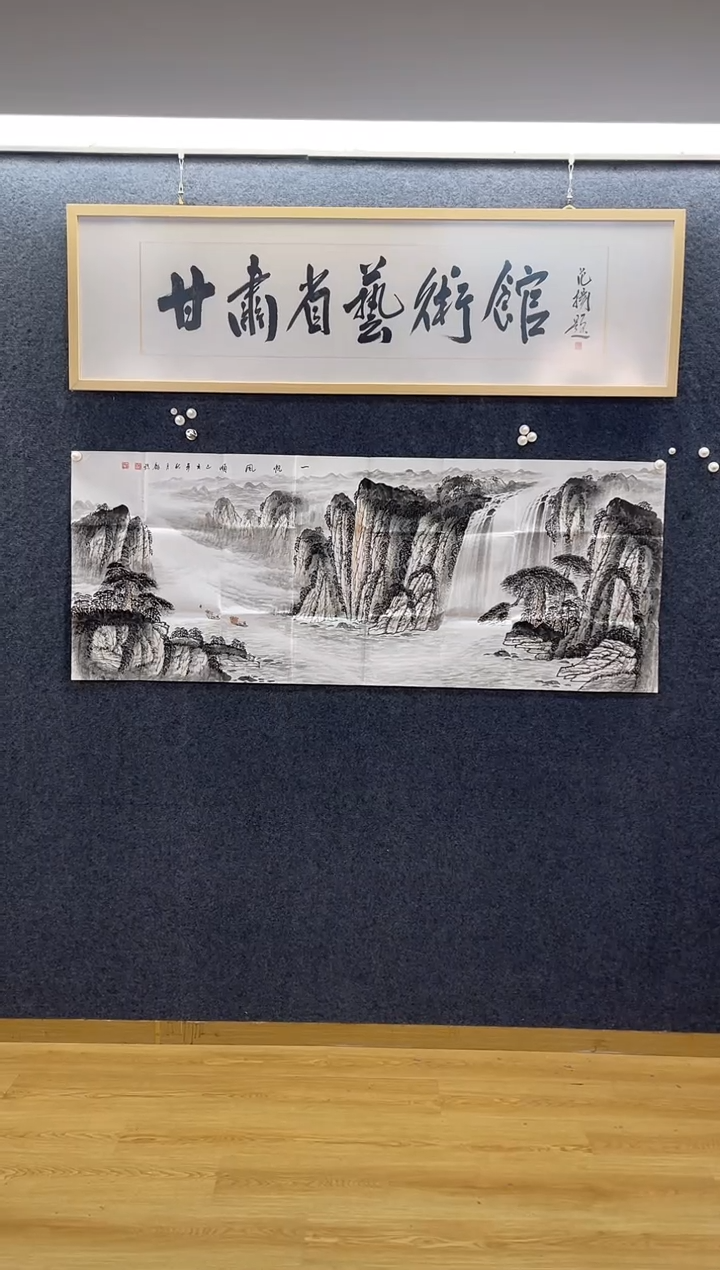 甘肅省藝術館
范摛題
一帆風順